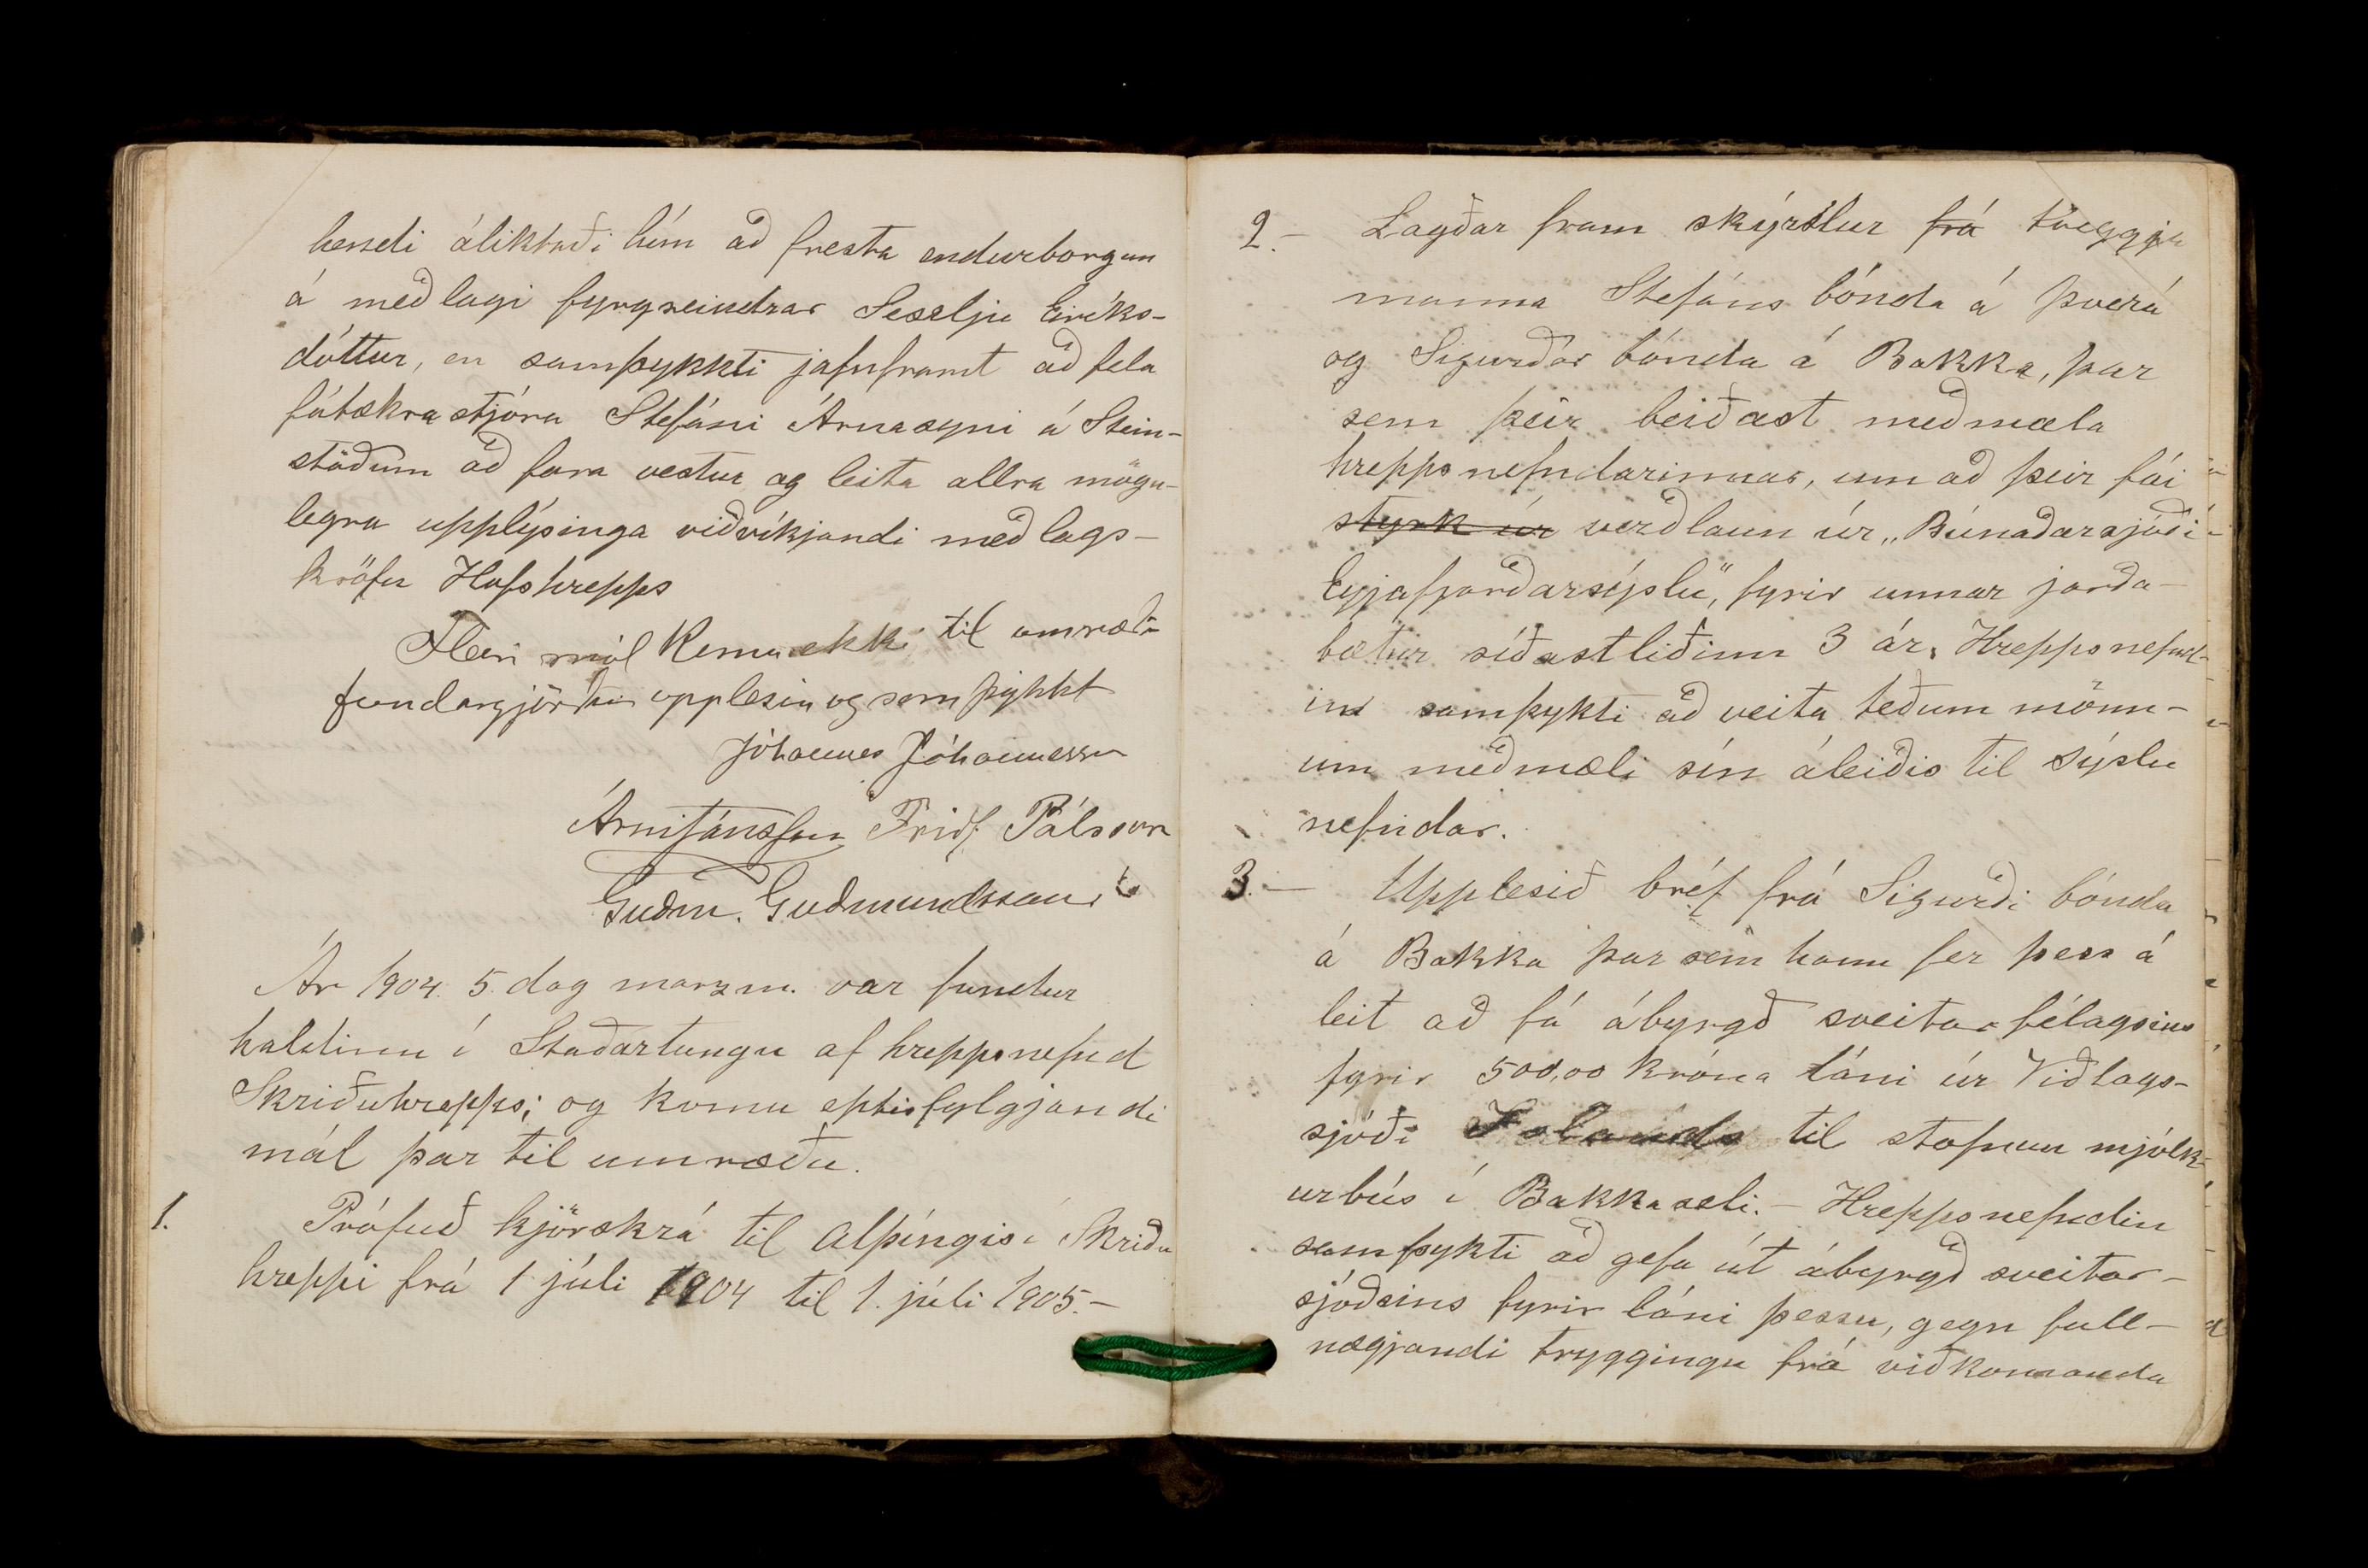 hendi áliktaði hún að fresta endurborgun
á meðlagi fyrgreindrar Sesselju Eiríks-
dóttur, en samþykkti jafnframt að fela
fátækrastjóra Stefáni Árnasyni á Stein-
stöðum að fara vestur og leita allra mögu-
legra upplýsinga viðvíkjandi meðlags-
kröfu Hofshrepps
Fleiri mál komu ekki til umræðu
fundargjörðin upplesin og samþykkt
Jóhannes Jóhannesson
Árni Jónsson Friðf. Pálsson
Guðm. Guðmundsson
Ár 1904. 5. dag marzm. var fundur
haldinn í Staðartungu af hreppsnefnd
Skriðuhrepps; og komu eptirfylgjandi
mál þar til umræðu.
1. Prófuð kjörskrá til Alþingis í Skriðu
hreppi frá 1 júli 1904 til 1. júli 1905.-
2.- Lagðar fram skýrslur frá tveggja
manna Stefáns bónda á Þverá
og Sigurðar bónda á Bakka, þar
sem þeir beiðast meðmæla
hreppsnefndarinnar, um að þeir fái
styrk úr verðlaun úr „Búnaðarsjóði
Eyjafjarðarsýslu", fyrir unnar jarða-
bætur síðastliðinn 3 ár. Hreppsnefnd-
in samþykti að veita téðum mönn-
um meðmæli sín áleiðis til sýslu
nefndar.
3.- Upplesið bréf frá Sigurði bónda
á Bakka þar sem hann fer þess á
leit að fá ábyrgð sveitarfélagsins
fyrir 500,00 króna láni úr Viðlaga-
sjóði Islands til stofnun mjólk-
urbús í Bakkaseli. - Hreppsnefndin
samþykti að gefa út ábyrgð sveitar-
sjóðsins fyrir láni þessu, gegn full-
nægjandi tryggingu frá viðkomanda